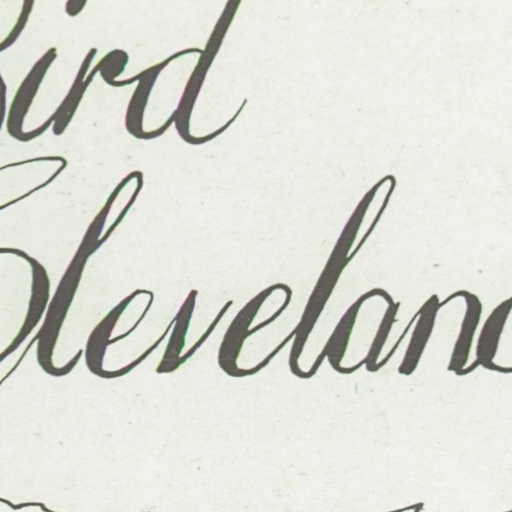 Bird
Clevelan